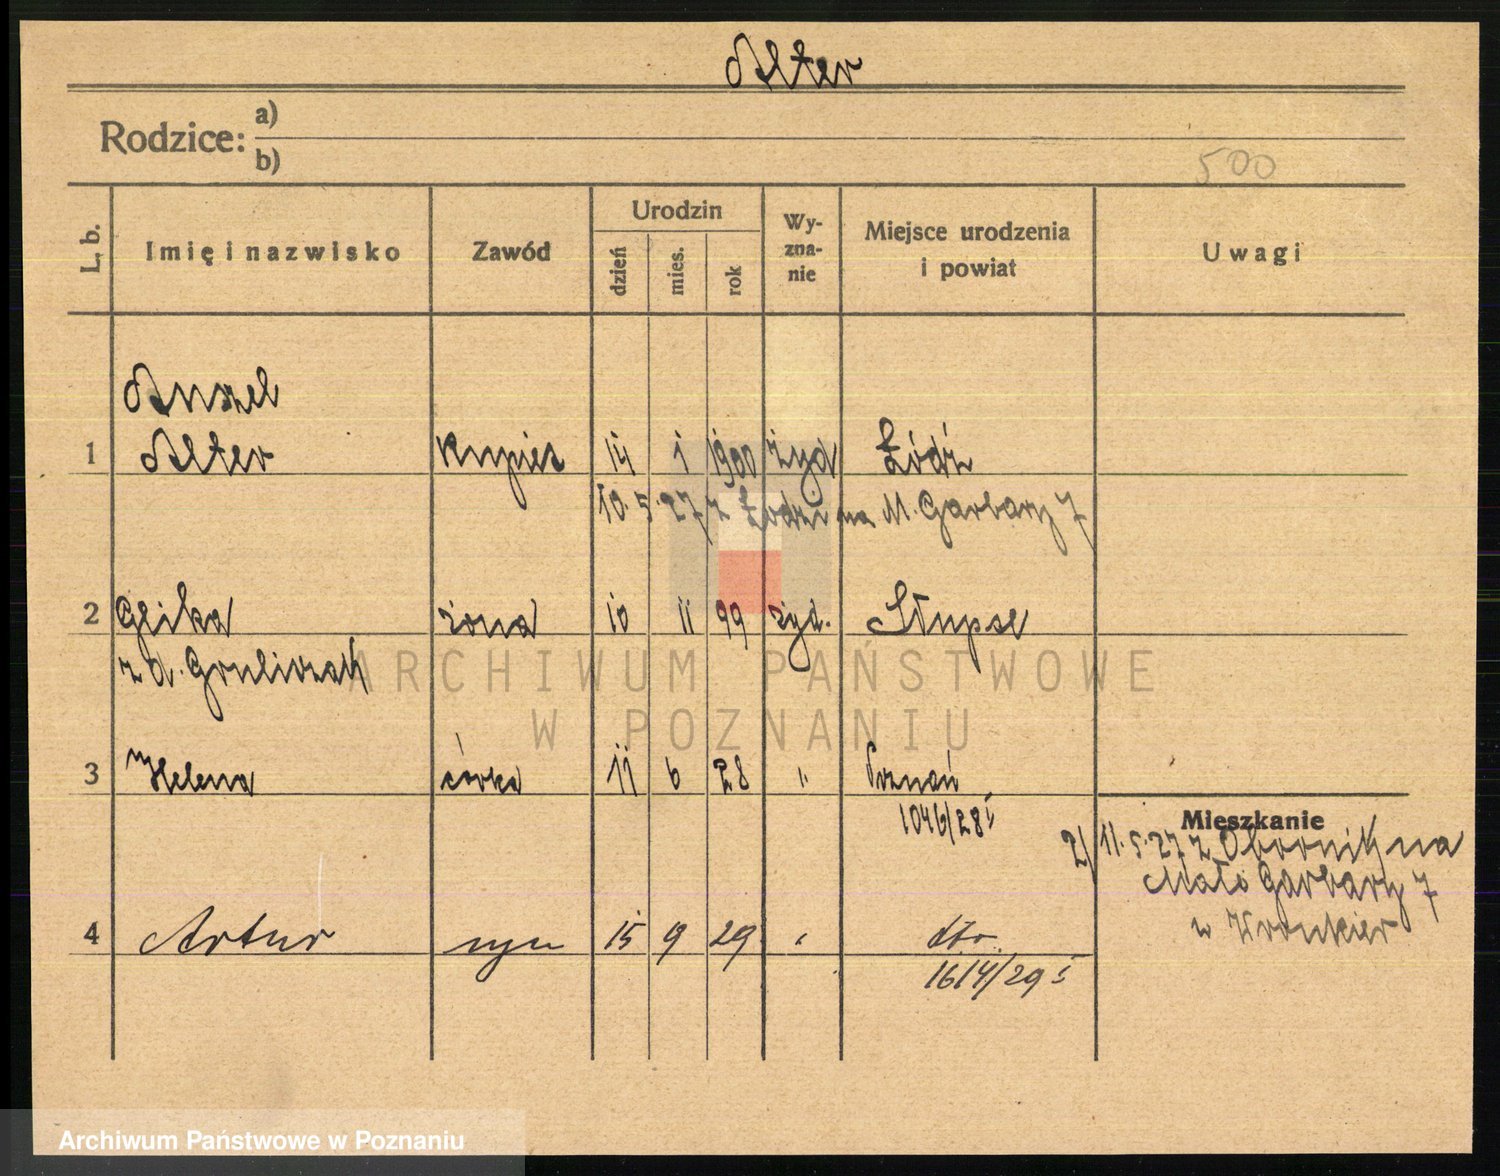 Alter
Rodzice: a)
b)
500
L. b. Imię i nazwisko Zawód Urodzin dzień mies. rok Wy-zna-nie Miejsce urodzenia i powiat Uwagi
Anszel
1 Alter kupiec 14 1 1900 żyd Łódź
10.5.27 z Łodzi na M. Garbary 7
2 Glika żona 10 11 99 żyd. Słupse
z d.
ARCHIWUM PAŃSTWOWE
W POZNANIU
3 Helena córka 11 6 28 " Poznań
1046/28
Mieszkanie
2/ 11.5.27 z Obornik na
Małe Garbary 7
w
4 Artur syn 15 9 29 " dto.
1614/29
Archiwum Państwowe w Poznaniu